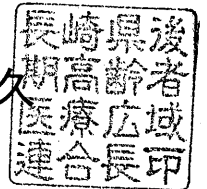 久
長崎県後
期高齢者
医療広域
連合長印